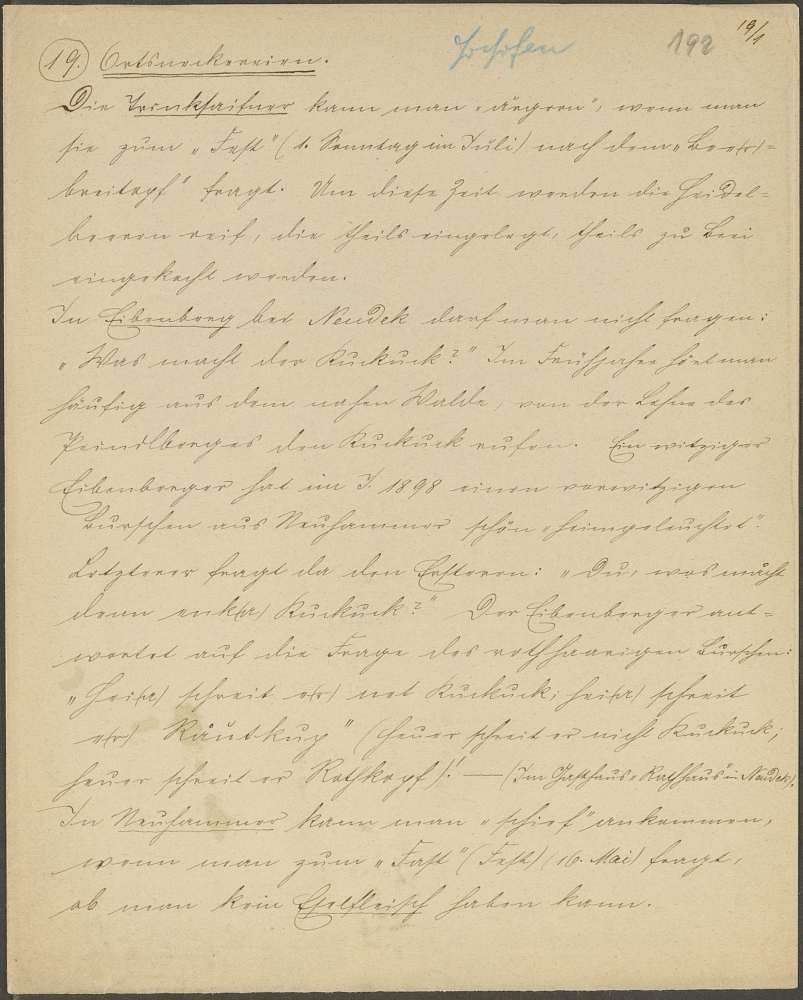 19/1
192
19. Ortsneckereien.
Die Trinksaifner kann man „ärgern", wenn man
sie zum „Fest" (1. Sonntag im Juli) nach dem
breitopf" fragt. Um diese Zeit werden die Heidel=
beeren reif, die theils eingelegt, theils zu Brei
eingekocht werden.
In Eibenberg bei Neudek darf man nicht fragen:
„Was macht der Kuckuck?" Im Frühjahr hört man
häufig aus dem nahen Walde, von der Lehne des
Peindlberges den Kuckuck rufen. Ein witziger
Eibenberger hat im J. 1898 einen vorwitzigen
Burschen aus Neuhammer schön „heimgeleuchtet".
Letzterer fragt da den Ersteren: „Du, wos måcht
denn enk(a) Kuckuck?" Der Eibenberger ant=
wortet auf die Frage des rothhaarigen Burschen:
„Hei(a) schreit e(r) net Kuckuck; hei(a) schreit
e(r) Råutkup" (heuer schreit er nicht Kuckuck;
heuer schreit er Rothkopf)! — (Im Gasthaus „Rathhaus" in Neudek).
In Neuhammer kann man „schief" ankommen,
wenn man zum „Fast" (Fest) (16. Mai) fragt,
ob man kein Eselfleisch haben kann.